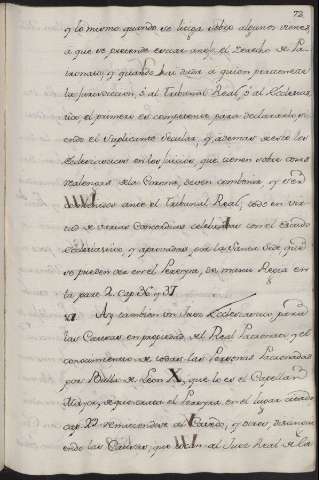 72
y lo mismo quando se litiga sobre algunos vienes
a que se pretende estar anejo el derecho de Pa-
tronato, y quando hai duda a quien pertenece
la Jurisdiccion, ò al Tribunal Real, ò al Eclesias-
tico, el primero es competente para declararlo, si-
endo el suplicante secular, y ademas de esto los
Eclesiasticos en los juicios, que tienen sobre cosas
realengas de la Corona, deven combenir y ser
combenidos ante el Tribunal Real, todo en vir-
tud de varias Concordias celebradas con el estado
Eclesiastico, y aprovadas por la Santa Sede que
se pueden vèr en el Pereyra, de manu Regia en
la parte 2. cap. y XI
XI Ay tambien un Juez Eclesiastico para
las Causas en propiedad del Real Patronato y el
conocimiento de todas las Personas Patronadas
por Bulla de Leon X, que lo es el Capellan
Mayor, de que trata el Pereyra en el lugar citado
cap. XX de Cardo, y otros, distinguï-
endo las Causas, que tocan al Juez Real de la